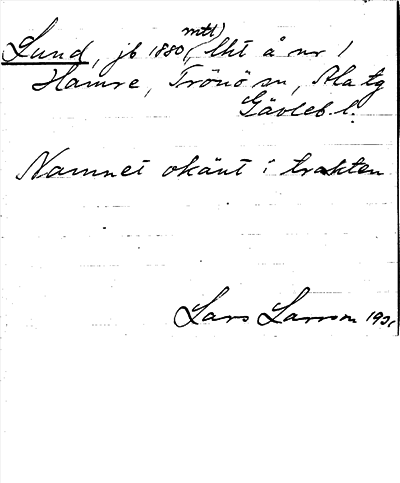 Lund, jb 1880 (mtl), lht å nr 1
Hamre, Trönö sn, Ala tg
Gävleb. l.
Namnet okänt i trakten
Lars Larsson